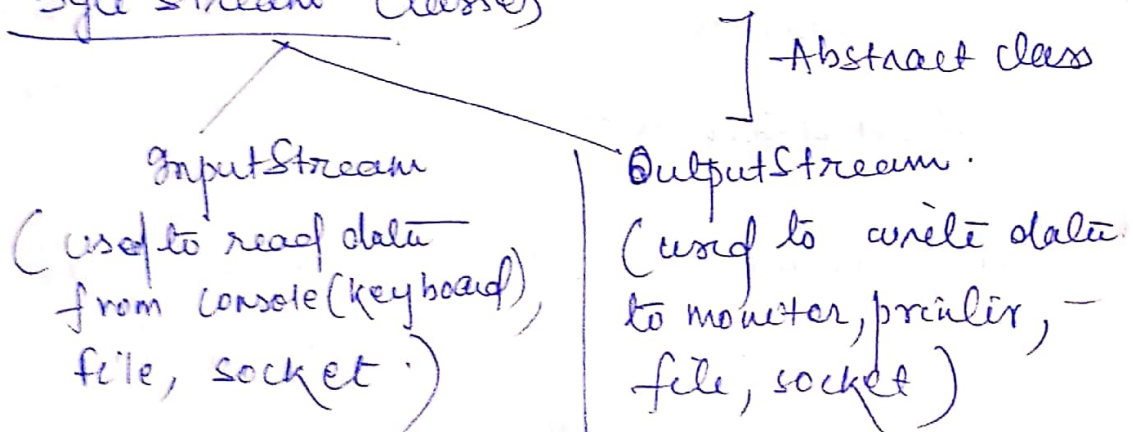 Byte Stream Classes
Abstract class
InputStream
(used to read data
from console(keyboard),
file, socket.)
OutputStream.
(used to write data
to monitor, printer,
file, socket)